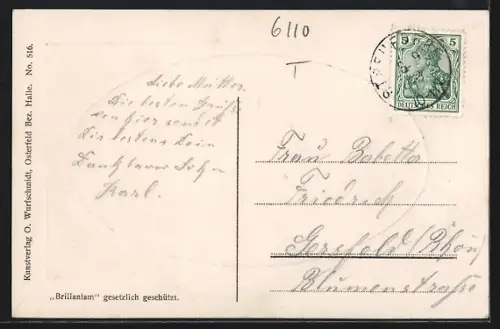 6110
T
Kunstverlag O. Wurfschmidt, Osterfeld Bez. Halle. No. 516.
5 5
DEUTSCHES REICH
Liebe Mutter.
Die besten Grüße
von hier sendet
Dir bestens Dein
Dankbarer Sohn
Karl.
Frau Babetta
Friedrich
Gersfeld (Rhön)
Blumenstrasse
„Brillantam“ gesetzlich geschützt.